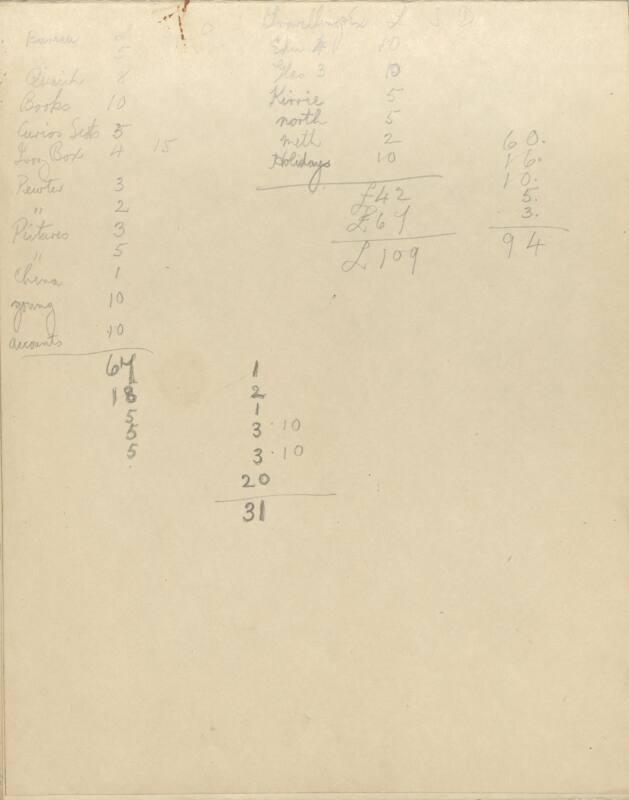 Bureau
5
Quaich 8
Books 10
Curios Sets 5
Ivory Box 4 15
Pewter 3
" 2
Pictures 3
" 5
China 1
young 10
accounts 10
67
18
5
5
5
L S D
Edin 4 10
Glas 3 10
Kirrie 5
north 5
meth 2
Holidays 10
£42
£67
£109
60.
16.
10.
5.
3.
94
1
2
1
3 · 10
3 · 10
20
31